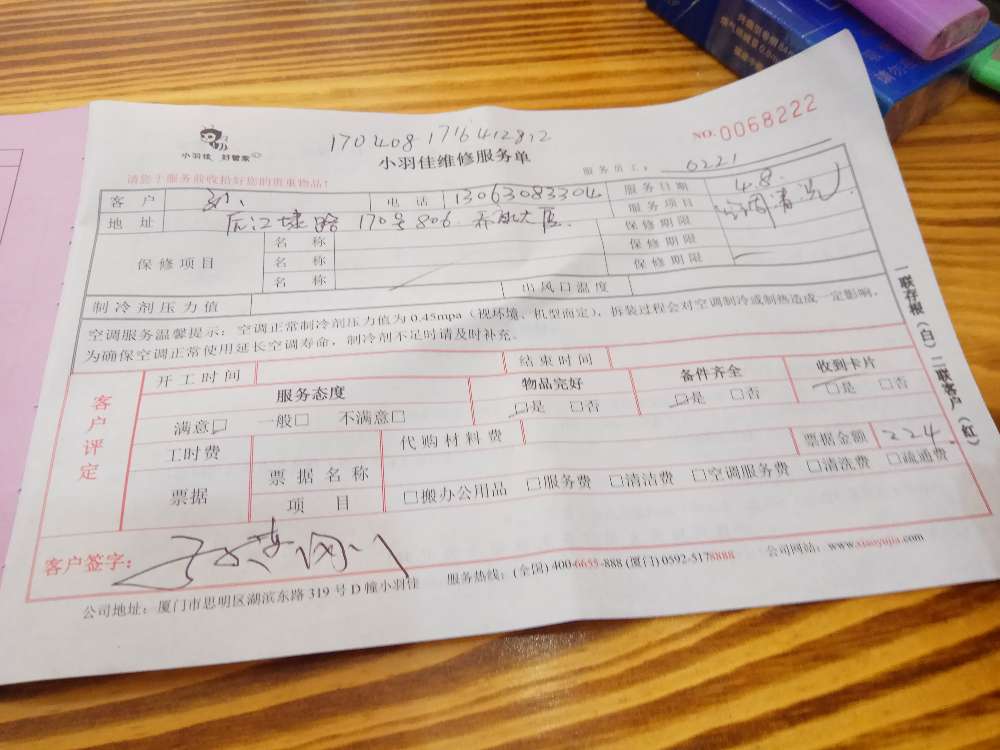 小羽佳 好管家
170408 1716412812
NO.0068222
小羽佳维修服务单
服务员工： 0221
请您于服务前收拾好您的贵重物品！
客 户 电 话 13063083304 服务日期 4.8
地 址 后江埭路 170号 806 服务项目 空调清洗
保修项目 名 称 保修期限
名 称 保修期限
名 称 保修期限
制冷剂压力值 出风口温度
空调服务温馨提示：空调正常制冷剂压力值为 0.45mpa（视环境、机型而定），拆装过程会对空调制冷或制热造成一定影响，
为确保空调正常使用延长空调寿命，制冷剂不足时请及时补充。
客户评定
开工时间 结束时间
服务态度 物品完好 备件齐全 收到卡片
满意□ 一般□ 不满意□ □是 □否 □是 □否 □是 □否
工时费 代购材料费 票据金额 224
票据 票据名称
项 目 □搬办公用品 □服务费 □清洁费 □空调服务费 □清洗费 □疏通费
客户签字：
公司地址：厦门市思明区湖滨东路 319 号 D 幢小羽佳 服务热线：(全国) 400-6655-888 (厦门) 0592-5178888 公司网站：www.xiaoyujia.com
一联存根（白）二联客户（红）